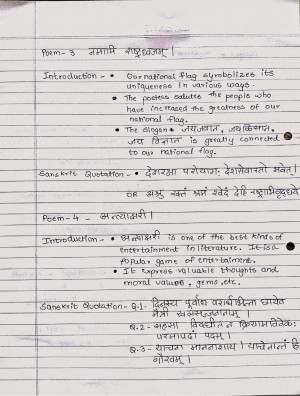 Poem-3 नमामि राष्ट्रध्वजम् ।
Introduction - • Our national flag symbolizes its
uniqueness in various ways.
• The poetess salutes the people who
have increased the greatness of our
national flag.
• The slogan - जयजवान, जयकिसान,
जय विज्ञान is greatly connected
to our national flag.
Sanskrit Quotation - • देशरक्षा परोयागः देशसेवारतो भवेत् ।
OR
Poem-4 - अन्त्याक्षरी ।
Introduction - • अन्त्याक्षरी is one of the best kinds of
entertainment in literature. It is a
popular game of entertainment.
• It express valuable thoughts and
moral values, gems, etc.
Sanskrit Quotation - Q.1 - दिनस्य पूर्वार्ध परार्धभिन्ना छायेव
मैत्री खलसज्जनानाम् ।
Q.2 - सहसा विदधीत न क्रियामविवेकः
परमापदां पदम् ।
Q.3 - याचना माननाशाय । याचेनान्तं हि
गौरवम् ।